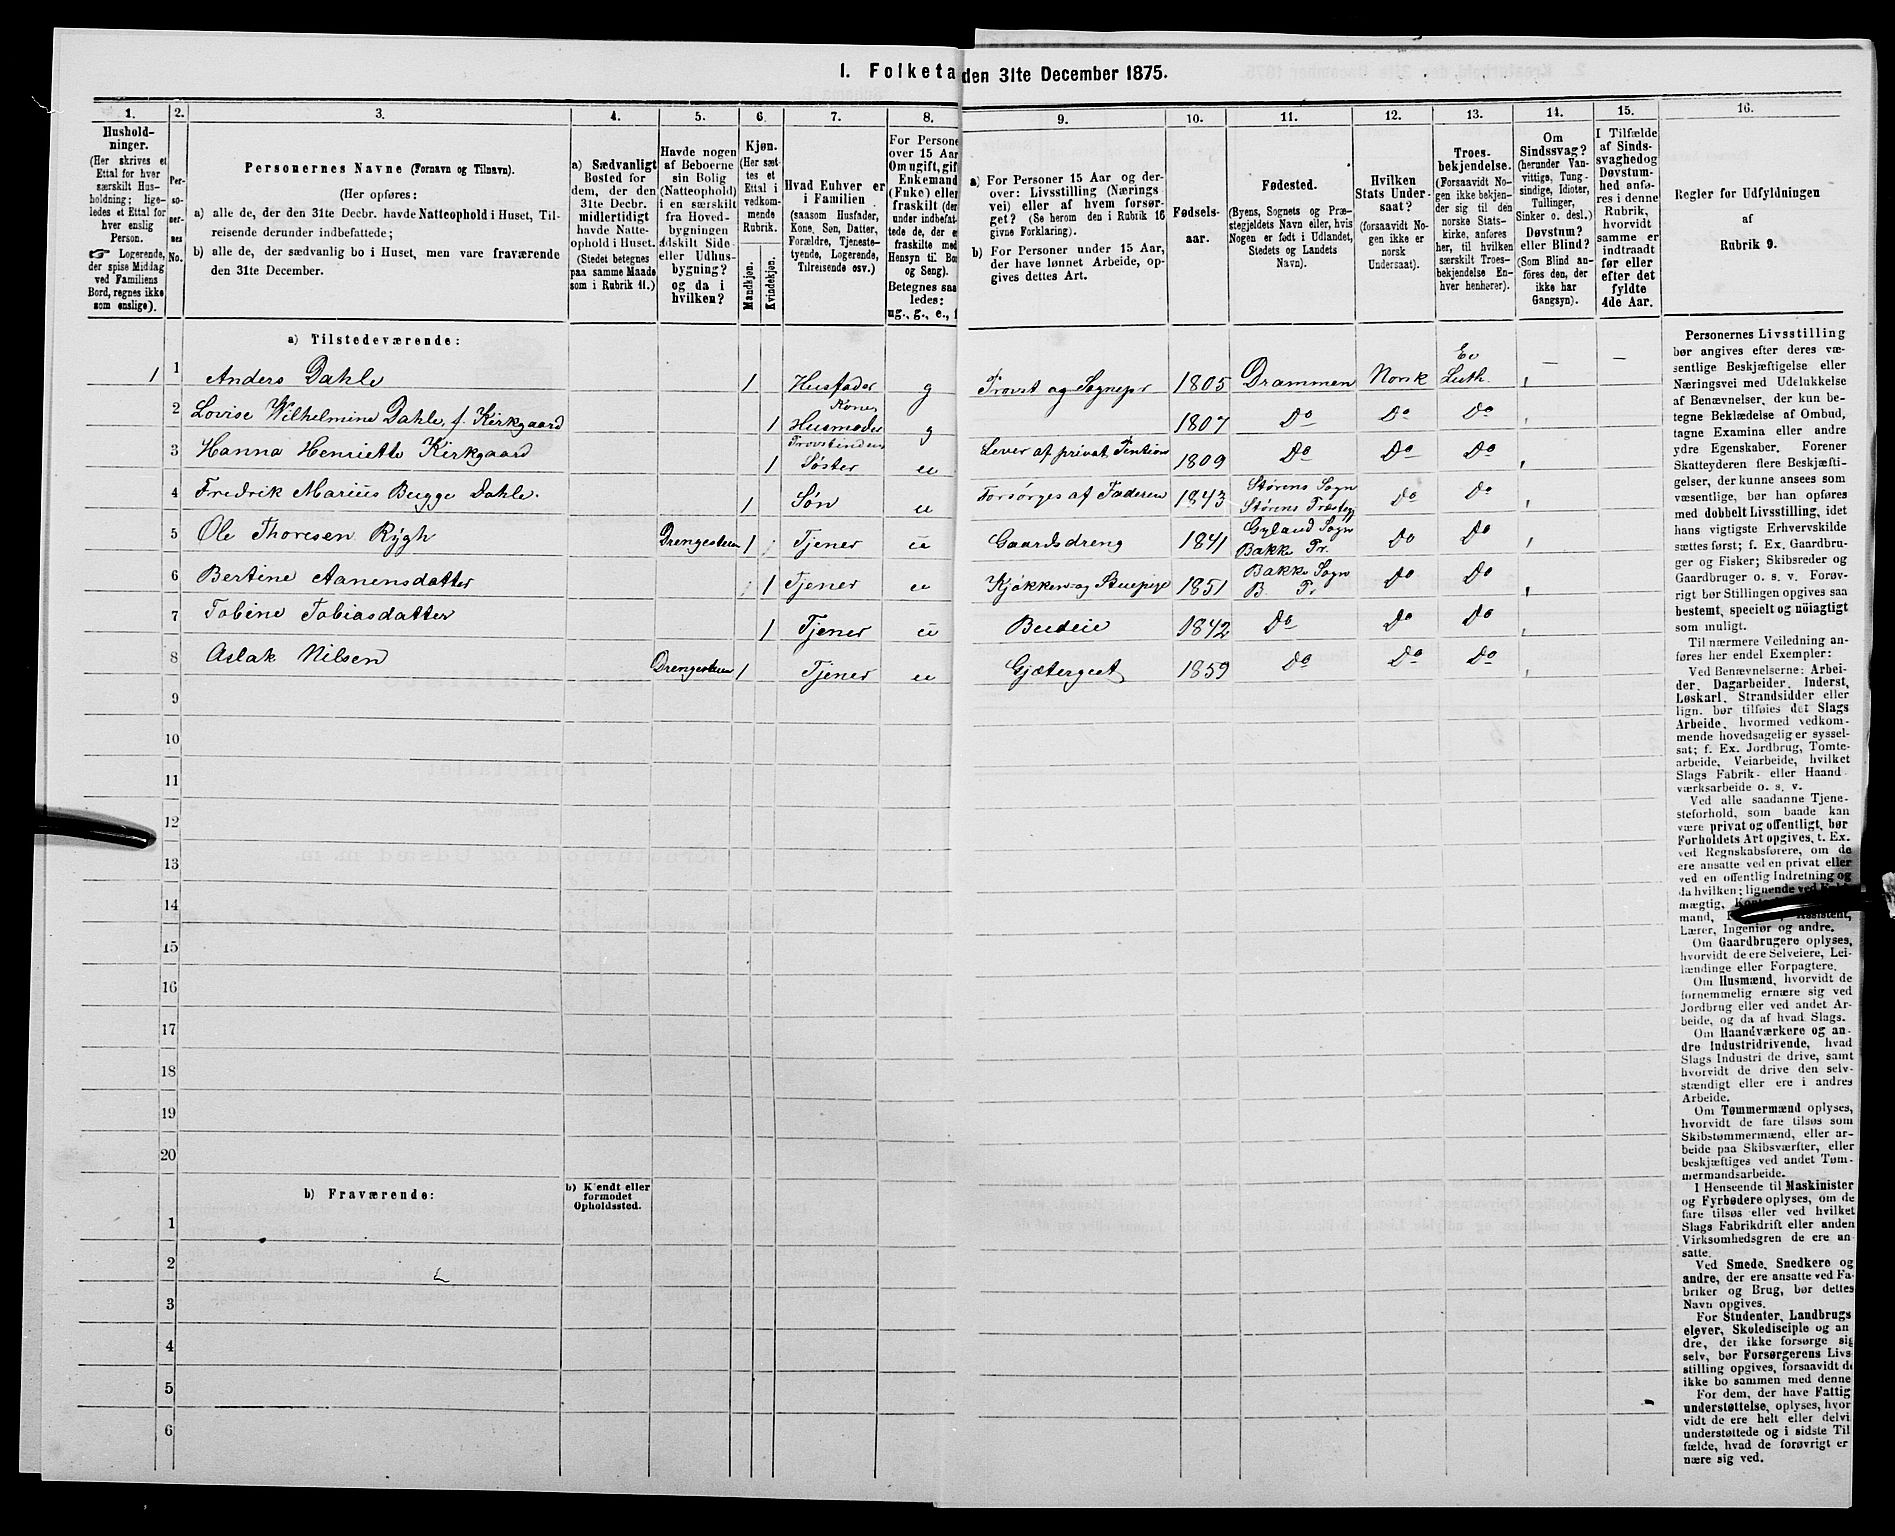 I. Folketa den 31te December 1875.
1. 2. 3. 4. 5. 6. 7. 8. 9. 10. 11. 12. 13. 14. 15. 16.
Hushold-
ninger.
(Her skrives et
Ettal for hver
særskilt Hus-
holdning; lige-
ledes et Ettal for
hver enslig
Person.
☞ Logerende,
der spise Middag
ved Familiens
Bord, regnes ikke
som enslige).
Per-
so-
ner-
nes
No.
Personernes Navne (Fornavn og Tilnavn).
(Her opføres:
a) alle de, der den 31te Decbr. havde Natteophold i Huset, Til-
reisende derunder indbefattede;
b) alle de, der sædvanlig bo i Huset, men vare fraværende
den 31te December.
a) Sædvanligt
Bosted for
dem, der den
31te Decbr.
midlertidigt
havde Natte-
ophold i Huset.
(Stedet betegnes
paa samme Maade
som i Rubrik 11.)
Havde nogen
af Beboerne
sin Bolig
(Natteophold)
i en særskilt
fra Hoved-
bygningen
adskilt Side-
eller Udhus-
bygning?
og da i
hvilken?
Kjøn.
(Her sæt-
tes et
Ettal i
vedkom-
mende
Rubrik.
Mandkjøn.
Kvindekjøn.
Hvad Enhver er
i Familien
(saasom Husfader,
Kone, Søn, Datter,
Forældre, Tjeneste-
tyende, Logerende,
Tilreisende osv.)
For Persone
over 15 Aar
Om ugift, gift
Enkemand
(Enke) eller
fraskilt (der
under indbefat-
tede de, der e
fraskilte med
Hensyn til Bo
og Seng).
Betegnes saa
ledes:
ug., g., e., f
a) For Personer 15 Aar og der-
over: Livsstilling (Nærings
vei) eller af hvem forsør-
get? (Se herom den i Rubrik 16
givne Forklaring).
b) For Personer under 15 Aar,
der have lønnet Arbeide, op-
gives dettes Art.
Fødsels-
aar.
Fødested.
(Byens, Sognets og Præ-
stegjeldets Navn eller, hvis
Nogen er født i Udlandet,
Stedets og Landets
Navn).
Hvilken
Stats Under-
saat?
(forsaavidt No-
gen ikke er
norsk
Undersaat).
Troes-
bekjendelse.
(Forsaavidt No-
gen ikke bekjen-
der sig til den
norske Stats-
kirke, anføres
her, til hvilken
særskilt Troes-
bekjendelse En-
hver henhører).
Om
Sindssvag?
(herunder Van-
vittige, Tung-
sindige, Idioter,
Tullinger,
Sinker o. desl.)
Døvstum?
eller Blind?
(Som Blind an-
føres den, der
ikke har
Gangsyn).
I Tilfælde
af Sinds-
svaghed og
Døvstum-
hed anfø-
res i denne
Rubrik,
hvorvidt
samme er
indtraadt
før eller
efter det
fyldte
4de Aar.
Regler for Udfyldningen
af
Rubrik 9.
a) Tilstedeværende:
1 1 Anders Dahle 1 Husfader g Provst og Sognepr 1805 Drammen Norsk Ev Luth. — —
2 Lovise Wilhelmine Dahle, f. Kirkgaard 1 Kone, Husmoder g 1807 Do Do Do
3 Hanna Henriette Kirkgaard 1 Provstindens Søster u Lever af privat Pention 1809 Do Do Do
4 Fredrik Marius Bugge Dahle. 1 Søn u Forsørges af Faderen 1843 Størens Sogn Størens Præsteg Do Do
5 Ole Thoresen Rygh Drengestuen 1 Tjener u Gaardsdreng 1841 Gyland Sogn Bakke Pr. Do Do
6 Bertine Aanensdatter 1 Tjener u Kjøkken- og Stuepige 1851 Bakke Sogn B Pr Do Do
7 Tobine Tobiasdatter 1 Tjener u Budeie 1842 Do Do Do
8 Aslak Nilsen Drengestuen 1 Tjener u Gjætergut 1859 Do Do Do
9
10
11
12
13
14
15
16
17
18
19
20
b) Fraværende: b) Kjendt eller
formodet
Opholdssted.
1
2
3
4
5
6
Personernes Livsstilling
bør angives efter deres væ-
sentlige Beskjæftigelse eller
Næringsvei med Udelukkelse
af Benævnelser, der kun be-
tegne Beklædelse af Ombud,
tagne Examina eller andre
ydre Egenskaber. Forener
Skatteyderen flere Beskjæfti-
gelser, der kunne ansees som
væsentlige, bør han opgives
med dobbelt Livsstilling, idet
hans vigtigste Erhvervskilde
sættes først; f. Ex. Gaardbru-
ger og Fisker; Skibsreder og
Gaardbruger o. s. v. Forøv-
rigt bør Stillingen opgives saa
bestemt, specielt og nöiagtigt
som muligt.
Til nærmere Veiledning an-
føres her endel Exempler:
Ved Benævnelserne: Arbei-
der, Dagarbeider, Inderst,
Løskarl, Strandsidder eller
lign. bør tilføies det Slags
Arbeide, hvormed vedkom-
mende hovedsagelig er syssel-
sat; f. Ex. Jordbrug, Tomte-
arbeide, Veiarbeide, hvilket
Slags Fabrik- eller Haand
værksarbeide o. s. v.
Ved alle saadanne Tjene-
steforhold, som baade kan
være privat og offentligt, bør
Forholdets Art opgives, t. Ex.
ved Regnskabsførere, om de
ere ansatte ved en privat eller
ved en offentlig Indretning og
da hvilken; lignende ved
mægtig,
mand, Assistent,
Lærer, Ingeniør og andre.
Om Gaardbrugere oplyses,
hvorvidt de ere Selveiere, Lei-
lændinge eller Forpagtere.
Om Husmænd, hvorvidt de
fornemmelig ernære sig ved
Jordbrug eller ved andet Ar-
beide, og da af hvad Slags.
Om Haandværkere og an-
dre Industridrivende, hvad
Slags Industri de drive, samt
hvorvidt de drive den selv-
stændigt eller ere i andres
Arbeide.
Om Tømmermænd oplyses,
hvorvidt de fare tilsøs som
Skibstømmermænd, eller ar-
beide paa Skibsværfter, eller
beskjæftiges ved andet Tøm-
mermandsarbeide.
I Henseende til Maskinister
og Fyrbødere oplyses, om de
fare tilsøs eller ved hvilket
Slags Fabrikdrift eller anden
Virksomhedsgren de ere an-
satte.
Ved Smede, Snedkere og
andre, der ere ansatte ved Fa-
briker og Brug, bør dettes
Navn opgives.
For Studenter, Landbrugs
elever, Skoledisciple og an
dre, der ikke forsørge sig
selv, bør Forsørgerens Livs-
stilling opgives, forsaavidt de
ikke bo sammen med denne
For dem, der have Fattig
understøttelse, oplyses, hvor
vidt de ere helt eller delvi
understøttede og i sidste Til
fælde, hvad de forøvrigt er
nære sig ved.